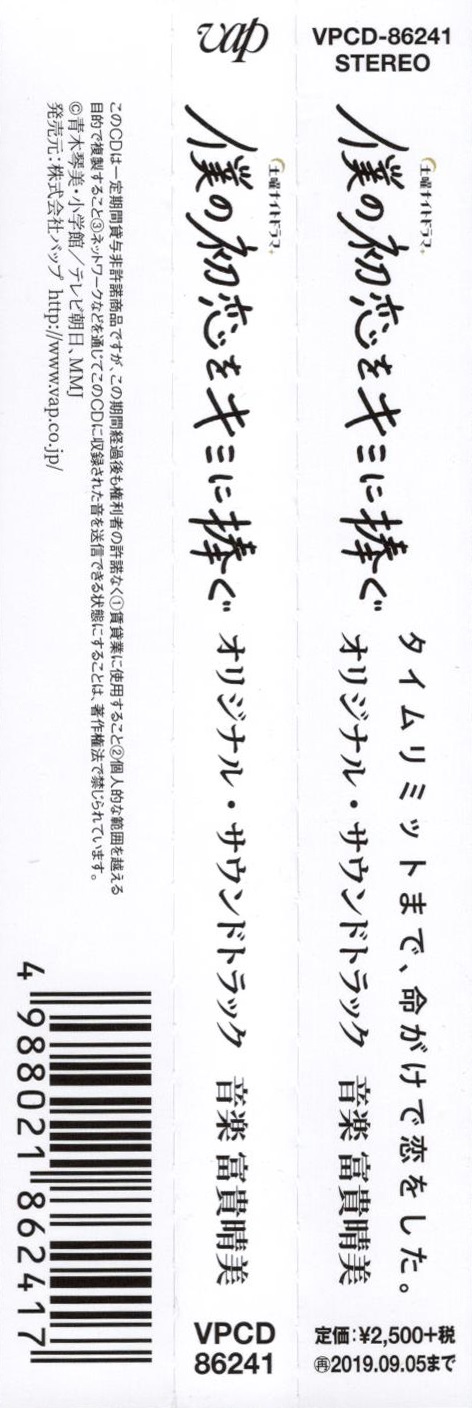 VPCD-86241
STEREO
土曜ナイトドラマ
僕の初恋をキミに捧ぐ
タイムリミットまで、命がけで恋をした。
オリジナル・サウンドトラック 音楽 富貴晴美
定価:¥2,500+税
再2019.09.05まで
vap
土曜ナイトドラマ
僕の初恋をキミに捧ぐ
オリジナル・サウンドトラック 音楽 富貴晴美
VPCD
86241
このCDは一定期間貸与非許諾商品ですが、この期間経過後も権利者の許諾なく①賃貸業に使用すること②個人的な範囲を越える
目的で複製すること③ネットワークなどを通じてこのCDに収録された音を送信できる状態にすることは、著作権法で禁じられています。
©青木琴美・小学館／テレビ朝日、MMJ
発売元:株式会社バップ http://www.vap.co.jp/
4 988021 862417